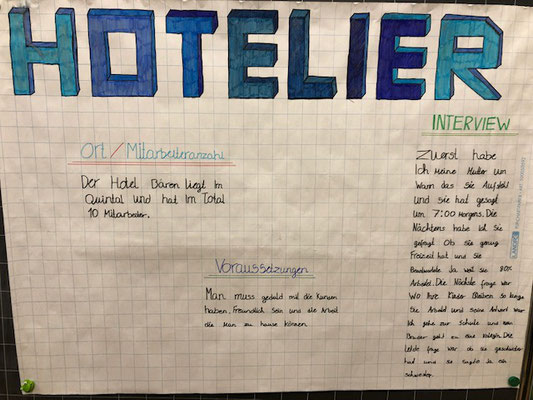 HOTELIER
Ort / Mitarbeiteranzahl
Der Hotel Bären liegt Im
Quintal und hat Im Total
10 Mitarbeiter.
Voraussetzungen
Man muss geduld mit die Kunden
haben, Freundlich Sein und die Arbeit
die Man zu hause können.
INTERVIEW
Zuerst habe
Ich Meine Mutter um
Wann das sie Aufsteht
und sie hat gesagt
um 7:00 Morgens. Die
Nächstens habe Ich Sie
gefragt Ob sie genug
Freizeit hat und sie
Ja weil sie 80%
Arbeitet. Die Nächste frage war
Wo Ihre Kinder Bleiben so lange
Sie Arbeitet und seine Antwort war
Ich gehe zur Schule und mein
Bruder geht zu eine Kollegin. Die
Letzte frage war ob sie geschwister
hat und sie sagte Ja ein
schwester.